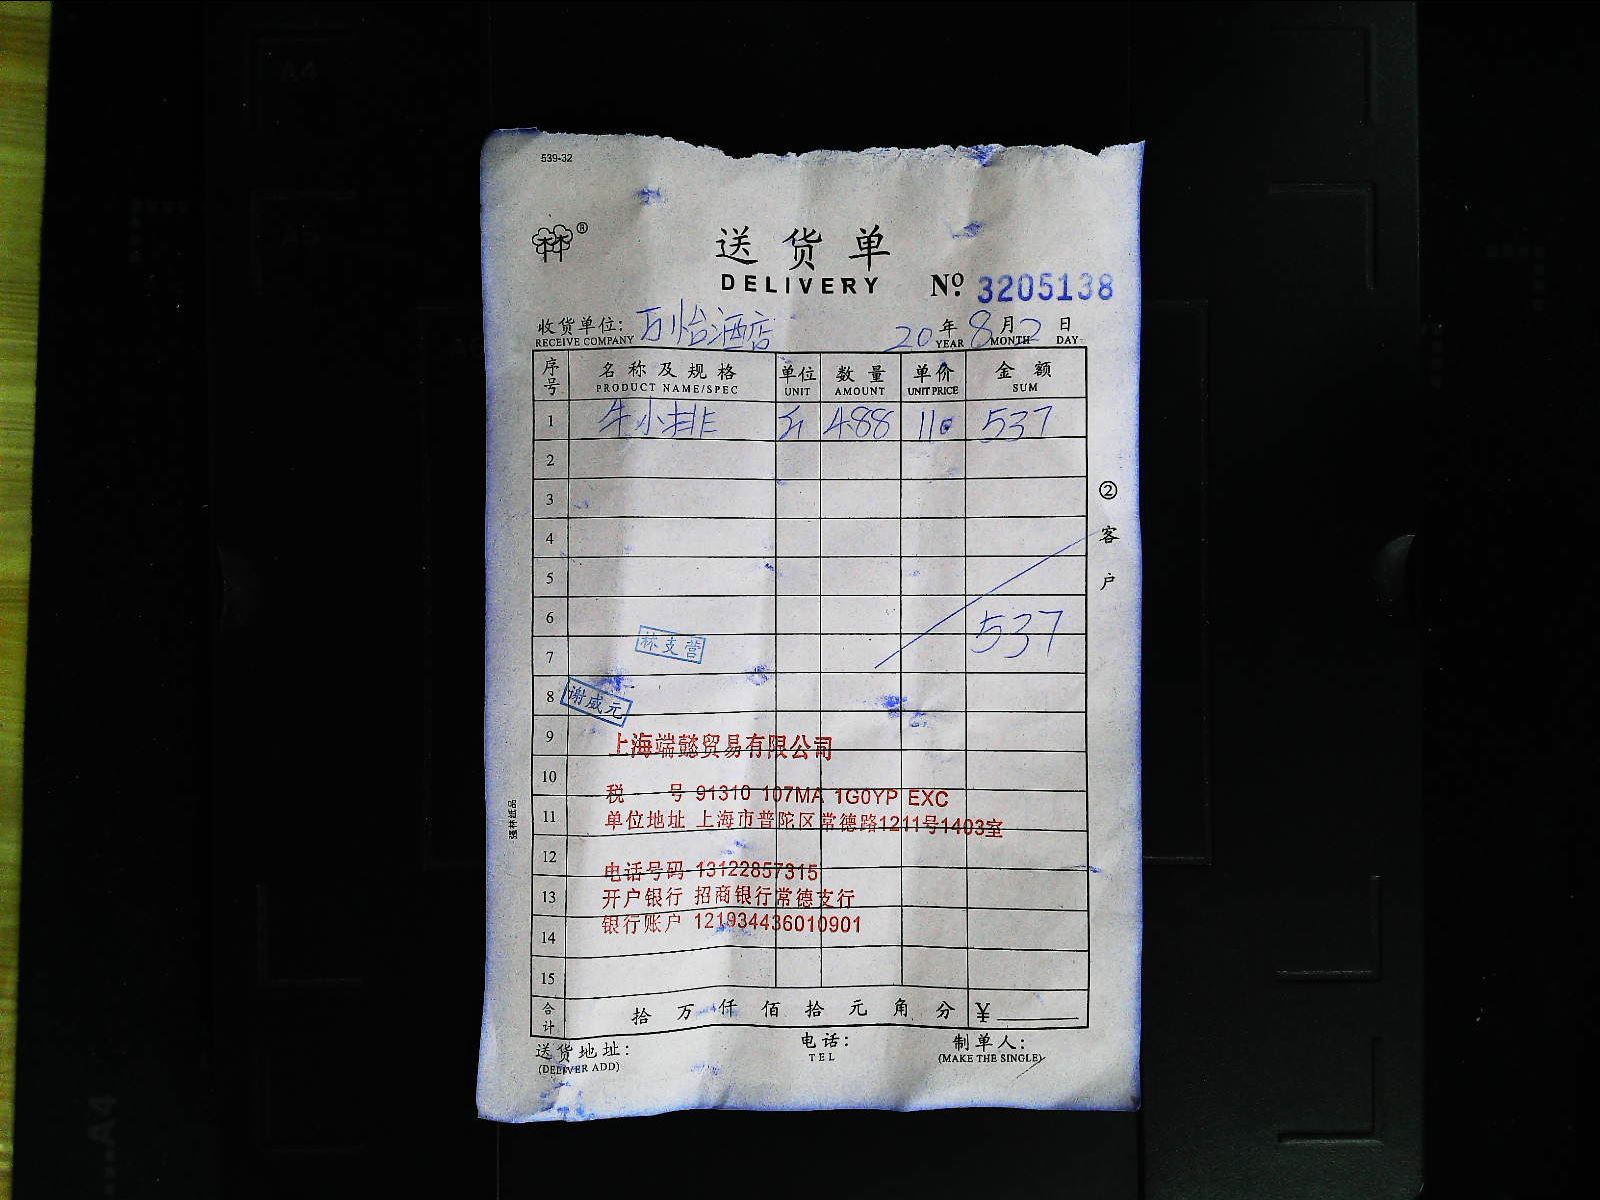 539-32
®
送货单
DELIVERY № 3205138
收货单位: 万怡酒店 20年8月2日
RECEIVE COMPANY YEAR MONTH DAY
序号 名称及规格 单位 数量 单价 金额
PRODUCT NAME/SPEC UNIT AMOUNT UNIT PRICE SUM
1 牛小排 斤 4.88 110 537
2
3
4
5
6 537
7 林支营
8 谢威元
9 上海端懿贸易有限公司
10 税 号 91310 107MA 1G0YP EXC
11 单位地址 上海市普陀区常德路1211号1403室
12 电话号码 13122857315
13 开户银行 招商银行常德支行
14 银行账户 121934436010901
15
合计 拾万仟佰拾元角分 ¥
送货地址: 电话: 制单人:
(DELIVER ADD) TEL (MAKE THE SINGLE)
② 客户